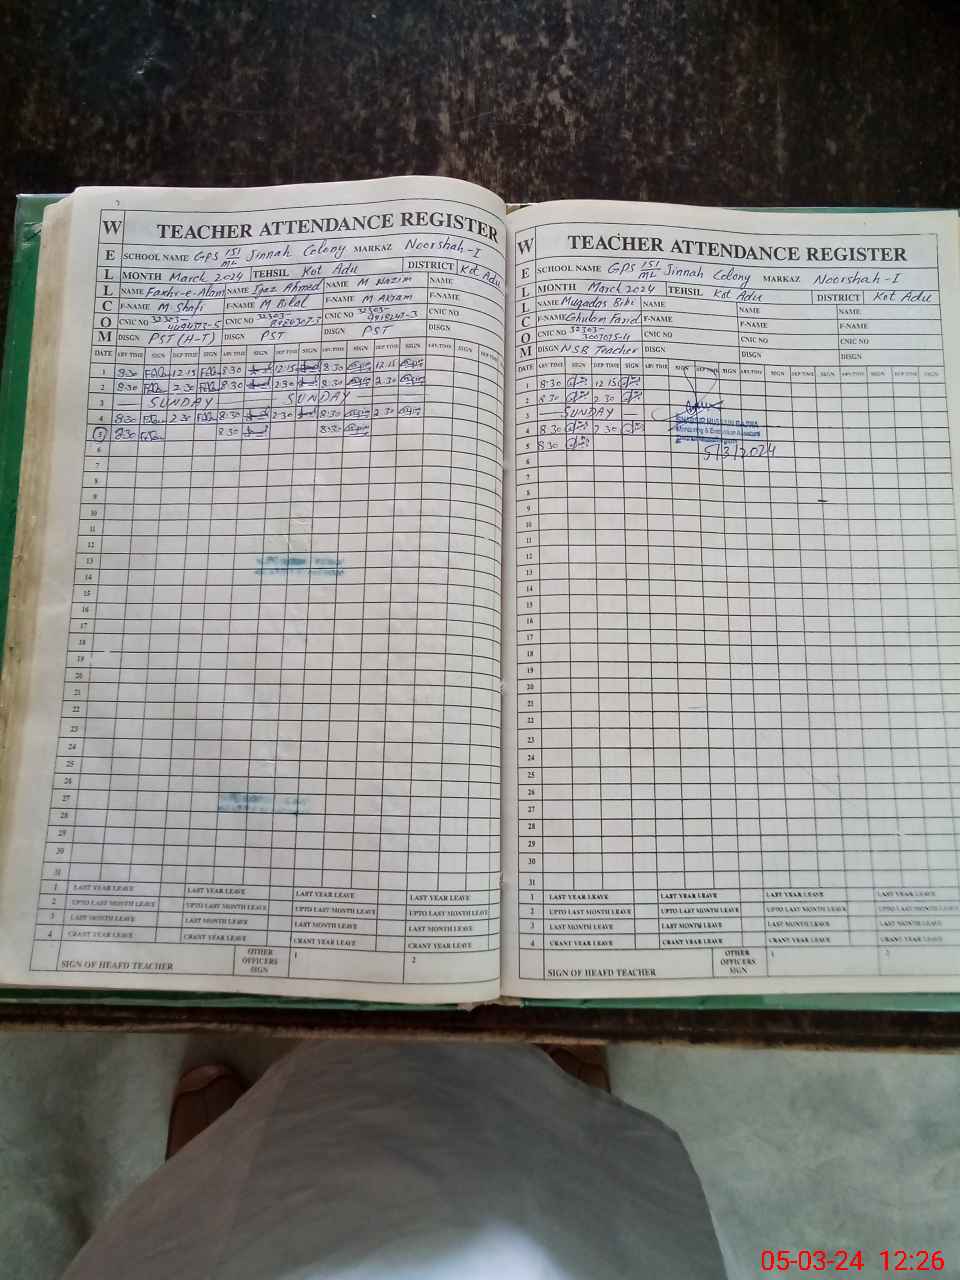 WELCOM
TEACHER ATTENDANCE REGISTER
SCHOOL NAME GPS 151/ML Jinnah Colony MARKAZ Noorshah-I
MONTH March 2024 TEHSIL Kot Adu DISTRICT Kot Adu
NAME Fakhr-e-Alam NAME Ijaz Ahmed NAME M Nazim NAME
F-NAME M Shafi F-NAME M Bilal F-NAME M Akram F-NAME
CNIC NO 32303- CNIC NO 32303- CNIC NO 32303- CNIC NO
DISGN PST (H-T) DISGN PST DISGN PST DISGN
DATE ARV:TIME SIGN DEP:TIME SIGN ARV:TIME SIGN DEP TIME SIGN ARV:TIME SIGN DEP TIME SIGN ARV:TIME SIGN DEP TIME
1 8:30 12:15 8:30 12:15 8:30 12:15
2 8:30 2:30 8:30 2:30 8:30 2:30
3 SUNDAY SUNDAY
4 8:30 2:30 8:30 2:30 8:30 2:30
5 8:30 8:30 8:30
6
7
8
9
10
11
12
13
14
15
16
17
18
19
20
21
22
23
24
25
26
27
28
29
30
31
1 LAST YEAR LEAVE LAST YEAR LEAVE LAST YEAR LEAVE LAST YEAR LEAVE
2 UPTO LAST MONTH LEAVE UPTO LAST MONTH LEAVE UPTO LAST MONTH LEAVE UPTO LAST MONTH LEAVE
3 LAST MONTH LEAVE LAST MONTH LEAVE LAST MONTH LEAVE LAST MONTH LEAVE
4 CRANT YEAR LEAVE CRANT YEAR LEAVE CRANT YEAR LEAVE CRANT YEAR LEAVE
SIGN OF HEAFD TEACHER OTHER OFFICERS SIGN 1 2
WELCOM
TEACHER ATTENDANCE REGISTER
SCHOOL NAME GPS 151/ML Jinnah Colony MARKAZ Noorshah-I
MONTH March 2024 TEHSIL Kot Adu DISTRICT Kot Adu
NAME Muqadas Bibi NAME NAME NAME
F-NAME Ghulam Farid F-NAME F-NAME F-NAME
CNIC NO 32303- CNIC NO CNIC NO CNIC NO
DISGN NSB Teacher DISGN DISGN DISGN
DATE ARV:TIME SIGN DEP TIME SIGN ARV:TIME SIGN DEP TIME SIGN ARV:TIME SIGN DEP TIME SIGN ARV:TIME SIGN DEP TIME SIGN
1 8:30 12 15
2 8:30 2 30
3 SUNDAY
4 8 30 2 30
5 8 30
Monitoring & Evaluation Assistant
5/3/2024
6
7
8
9
10
11
12
13
14
15
16
17
18
19
20
21
22
23
24
25
26
27
28
29
30
31
1 LAST YEAR LEAVE LAST YEAR LEAVE LAST YEAR LEAVE LAST YEAR LEAVE
2 UPTO LAST MONTH LEAVE UPTO LAST MONTH LEAVE UPTO LAST MONTH LEAVE UPTO LAST MONTH LEAVE
3 LAST MONTH LEAVE LAST MONTH LEAVE LAST MONTH LEAVE LAST MONTH LEAVE
4 CRANT YEAR LEAVE CRANT YEAR LEAVE CRANT YEAR LEAVE CRANT YEAR LEAVE
SIGN OF HEAFD TEACHER OTHER OFFICERS SIGN 1 2
05-03-24 12:26